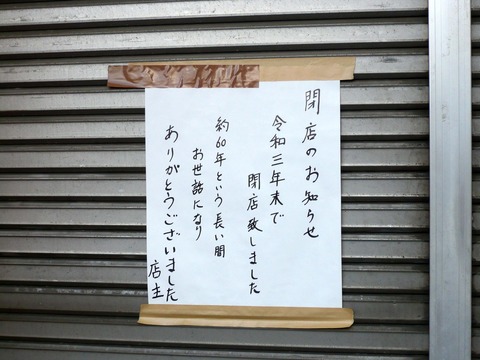 閉店のお知らせ
令和三年末で
閉店致しました
約60年という長い間
お世話になり
ありがとうございました
店主